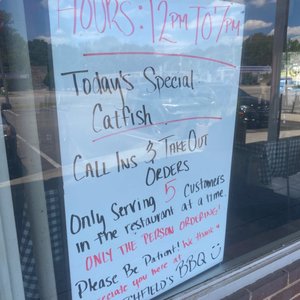 HOURS: 12PM TO 7PM
Today's Special
Catfish
CALL INS & TAKE OUT
ORDERS
Only Serving 5 Customers
in the restaurant at a time.
ONLY THE PERSON ORDERING!
Please Be Patient! We thank &
you here at
BBQ